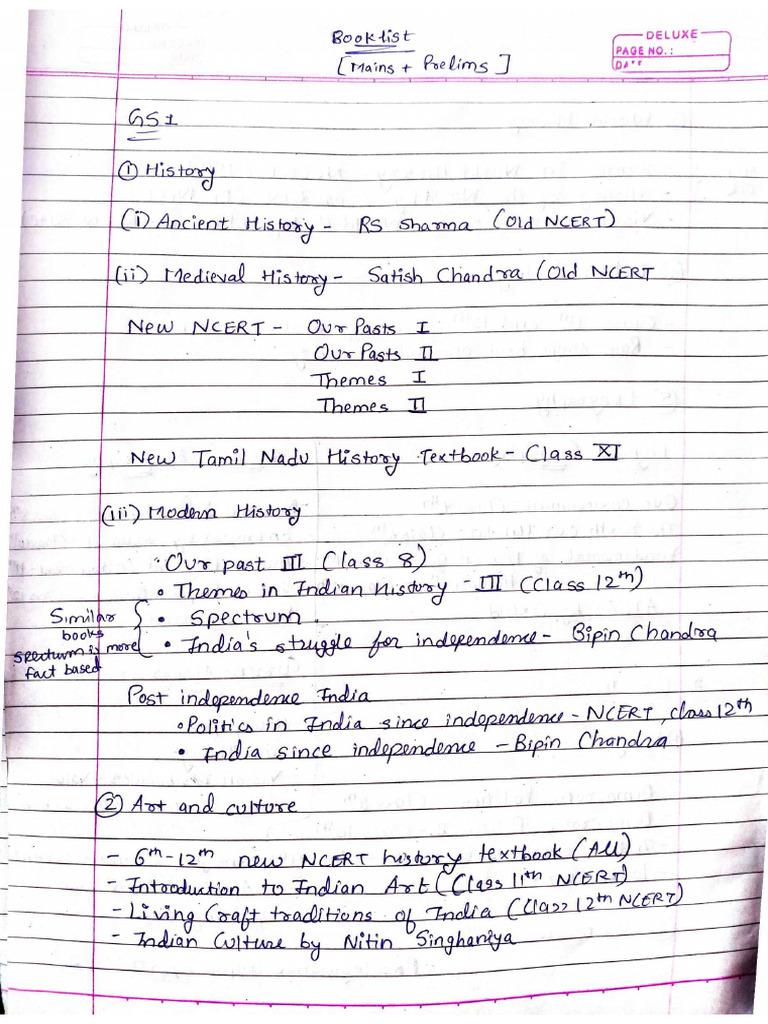 Booklist
[Mains + Prelims]
DELUXE
PAGE NO.:
DATE
GS1
① History
(i) Ancient History - RS Sharma (Old NCERT)
(ii) Medieval History - Satish Chandra (Old NCERT
New NCERT - Our Pasts I
Our Pasts II
Themes I
Themes II
New Tamil Nadu History Textbook - Class XI
(iii) Modern History
• Our past III (Class 8)
• Themes in Indian History - III (Class 12th)
• Spectrum.
• India's struggle for independence - Bipin Chandra
Similar
books
Spectrum is more
fact based
Post independence India
• Politics in India since independence - NCERT, class 12th
• India since independence - Bipin Chandra
② Art and culture
- 6th-12th new NCERT history textbook (All)
- Introduction to Indian Art (Class 11th NCERT)
- Living Craft traditions of India (Class 12th NCERT)
- Indian Culture by Nitin Singhaniya